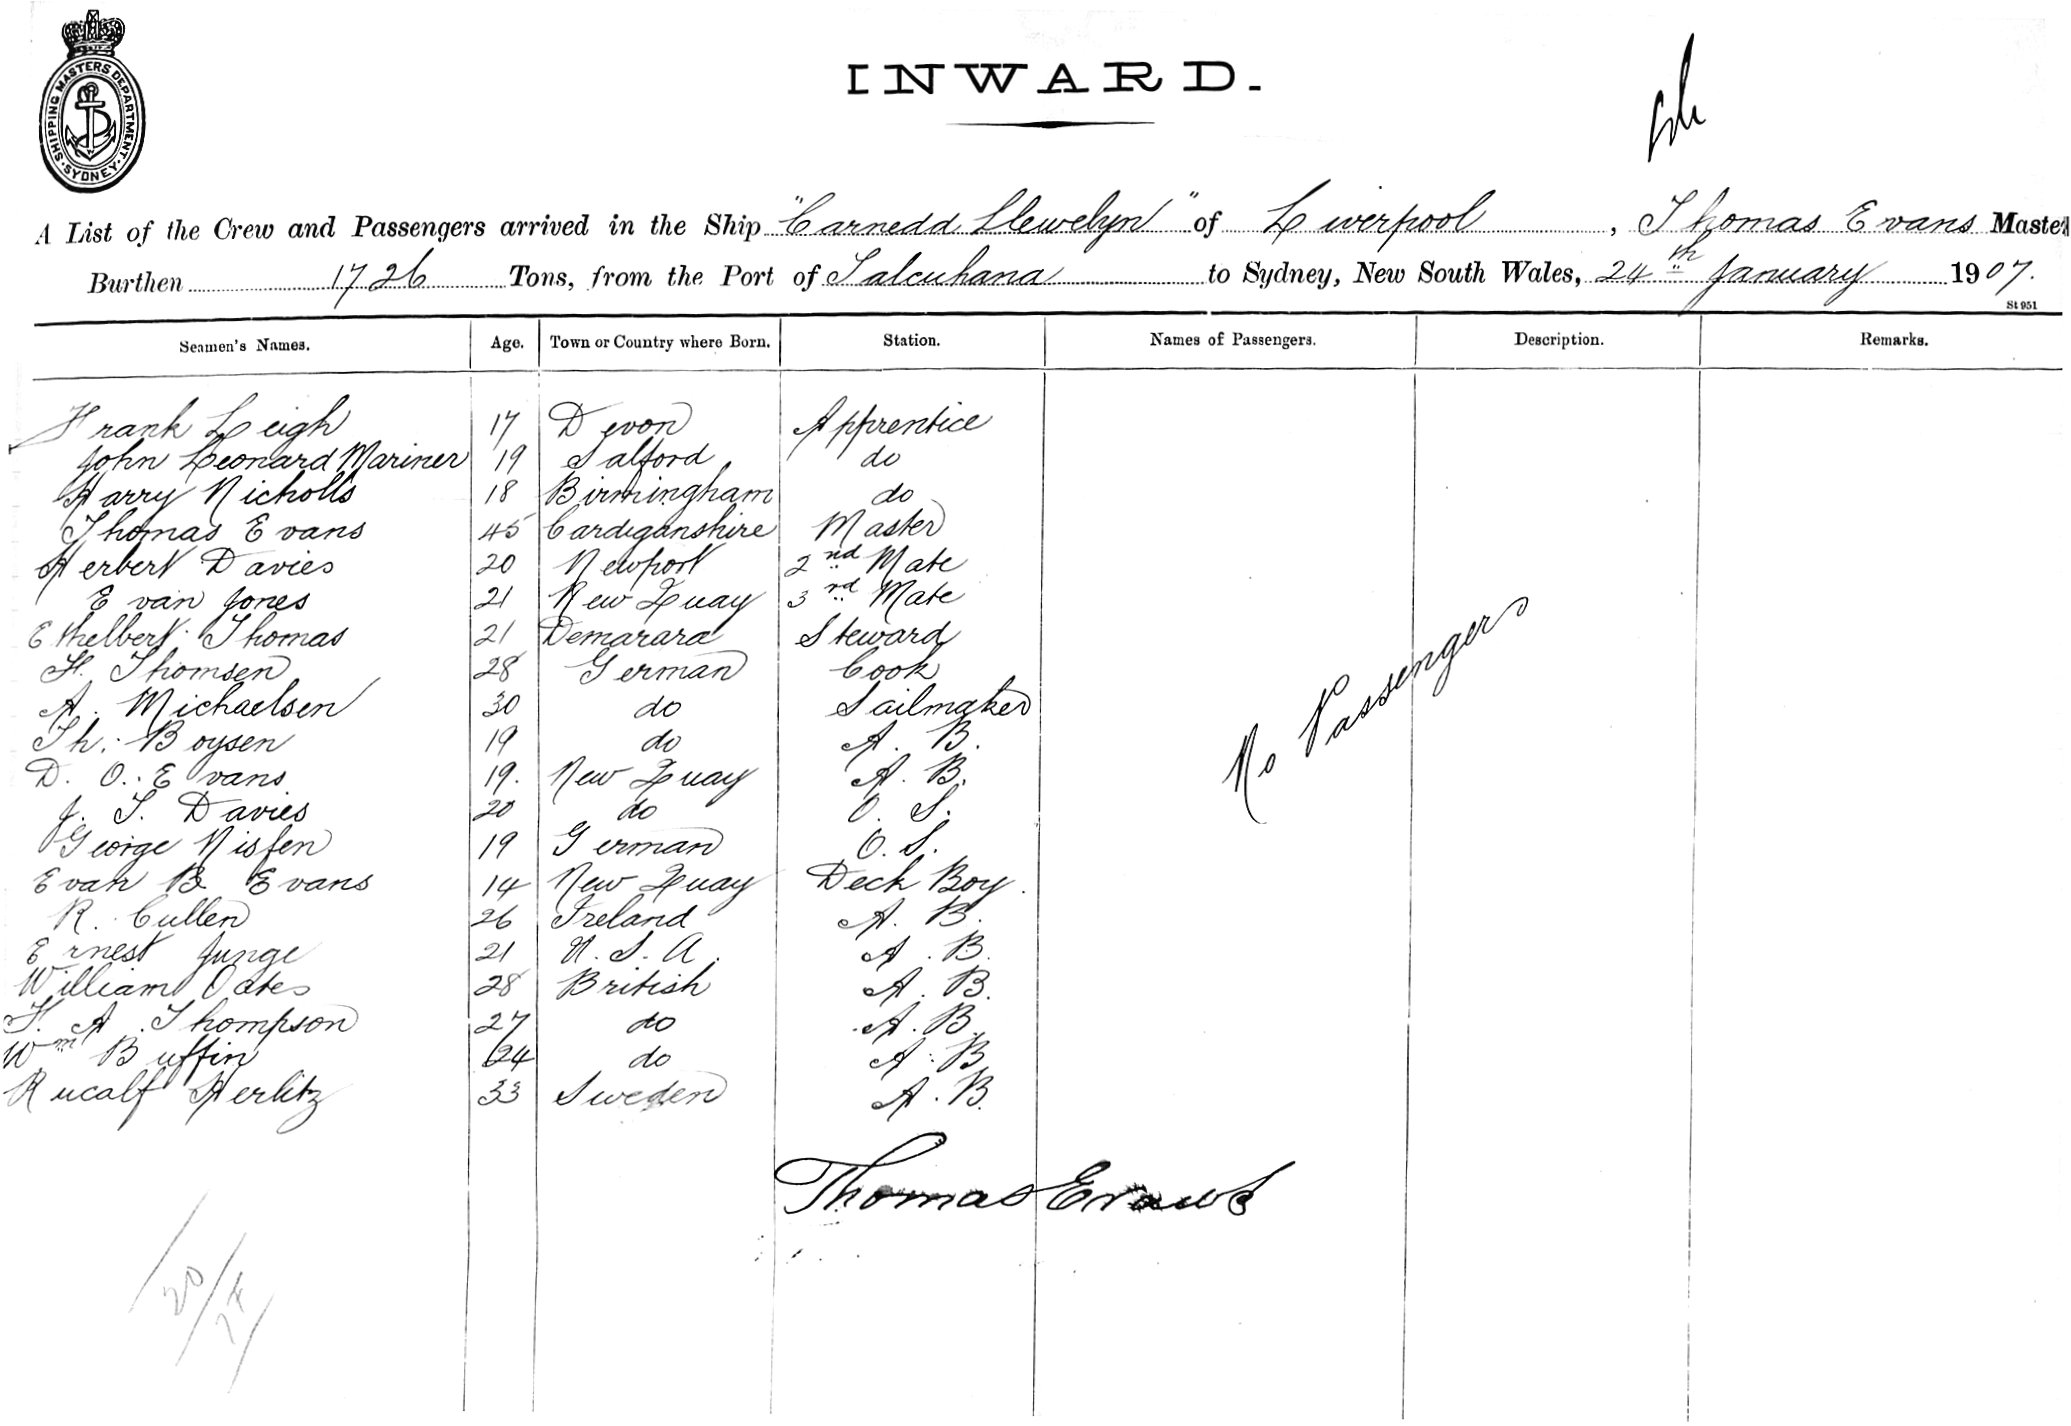 SHIPPING MASTERS DEPARTMENT. SYDNEY
INWARD.
A List of the Crew and Passengers arrived in the Ship "Carnedd Llewelyn" of Liverpool, Thomas Evans Master
Burthen 1726 Tons, from the Port of Talcuhana to Sydney, New South Wales, 24th January 1907.
St 951
Seamen's Names. Age. Town or Country where Born. Station. Names of Passengers. Description. Remarks.
Frank Leigh 17 Devon Apprentice
John Leonard Mariner 19 Salford do
Harry Nicholls 18 Birmingham do
Thomas Evans 45 Cardiganshire Master
Herbert Davies 20 Newport 2nd Mate
Evan Jones 21 New Quay 3rd Mate
Ethelbert Thomas 21 Demarara Steward
H. Thomsen 28 German Cook
A. Michaelsen 30 do Sailmaker
Th. Boysen 19 do A. B.
D. O. Evans 19. New Quay A. B.
J. T. Davies 20 do O. S.
George Nissen 19 German O. S.
Evan B Evans 14 New Quay Deck Boy.
R. Cullen 26 Ireland A. B.
Ernest Junge 21 U. S. A. A. B.
William Oates 28 British A. B.
H. A. Thompson 27 do A. B.
Wm Buffin 24 do A. B
Rucalf Herlitz 33 Sweden A. B.
No Passengers
Thomas Evans
20/